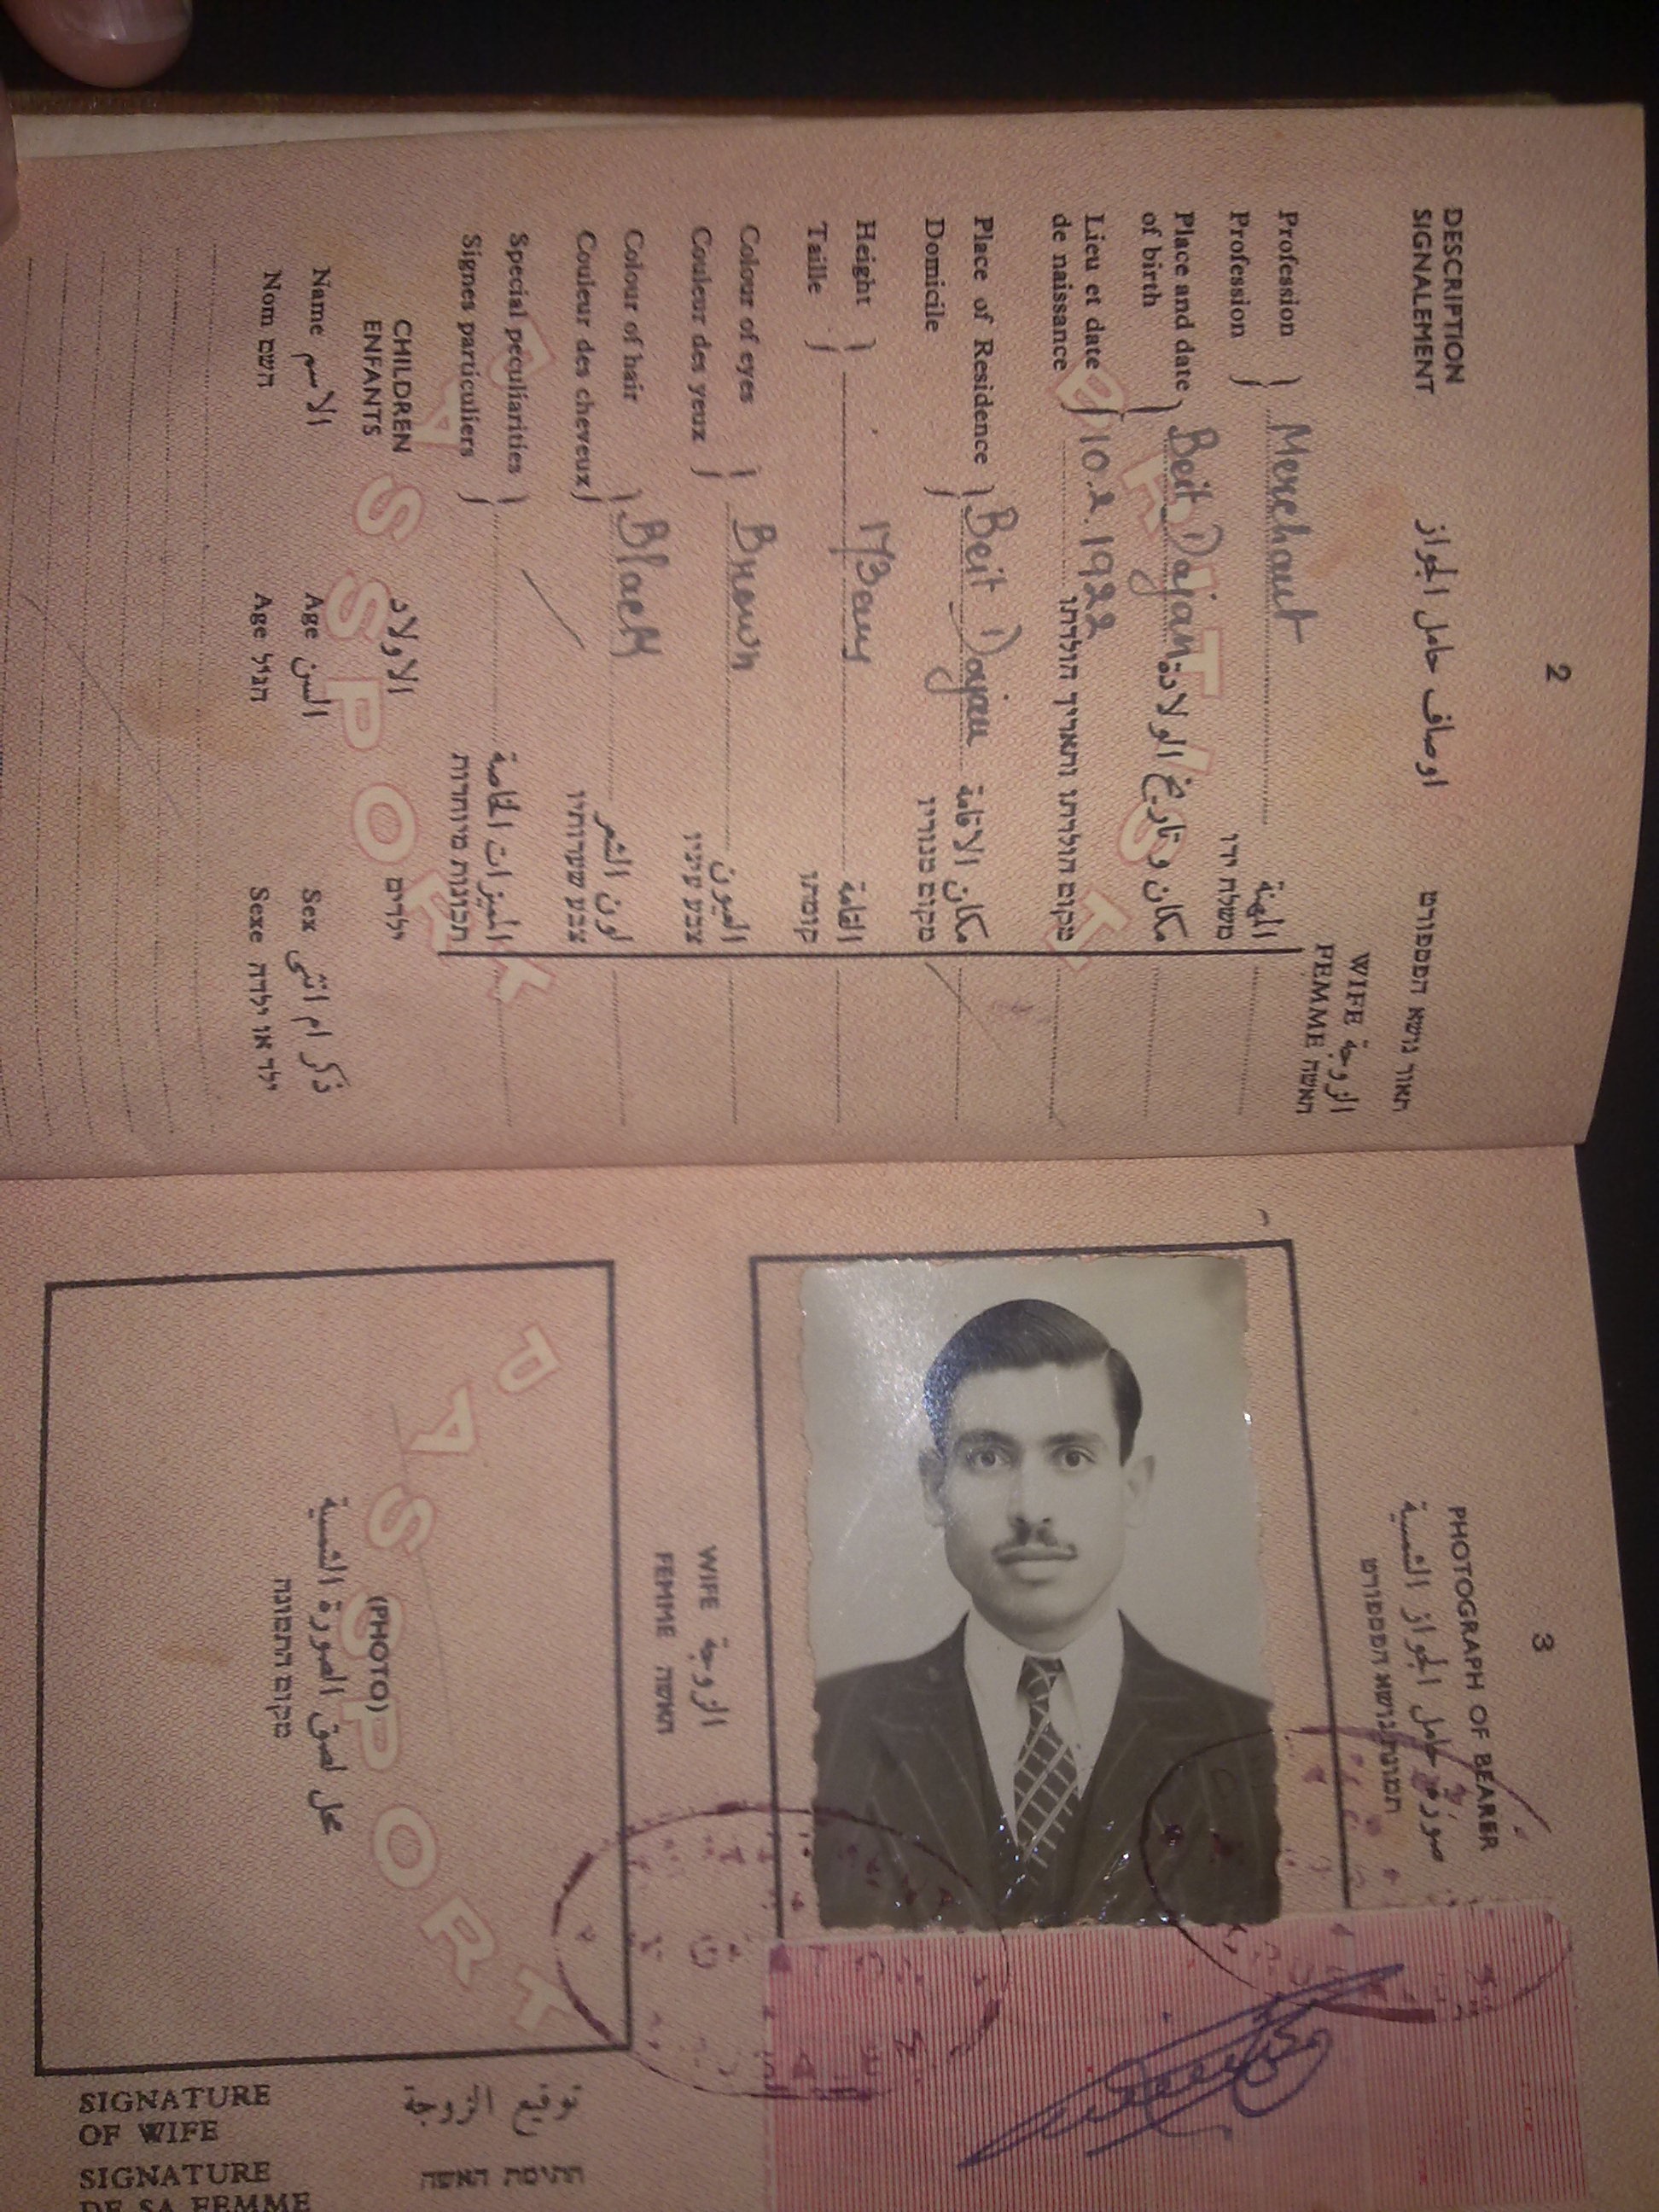 2
DESCRIPTION اوصاف حامل الجواز תאור נושא הפספורט
SIGNALEMENT
WIFE الزوجة
FEMME האשה
Profession Merchant المهنة
Profession משלח ידו
Place and date of birth Beit Dajan مكان وتاريخ الولادة
Lieu et date de naissance 10.2.1922 מקום הולדתו ותאריך הולדתו
Place of Residence Beit Dajan مكان الاقامة
Domicile מקום מגוריו
Height 173 cms القامة
Taille קומתו
Colour of eyes Brown العيون
Couleur des yeux צבע עיניו
Colour of hair Black لون الشعر
Couleur des cheveux צבע שערותיו
Special peculiarities المميزات الخاصة
Signes particuliers תכונות מיוחדות
CHILDREN الاولاد ילדים
ENFANTS
Name الاسم Age السن Sex ذكر ام انثى
Nom השם Age הגיל Sexe ילד או ילדה
BRITISH
PASSPORT
3
PHOTOGRAPH OF BEARER
صورة حامل الجواز الشمسية
תמונת נושא הפספורט
WIFE الزوجة
FEMME האשה
PASSPORT
(PHOTO)
محل لصق الصورة الشمسية
מקום התמונה
SIGNATURE OF WIFE توقيع الزوجة
SIGNATURE DE SA FEMME חתימת האשה